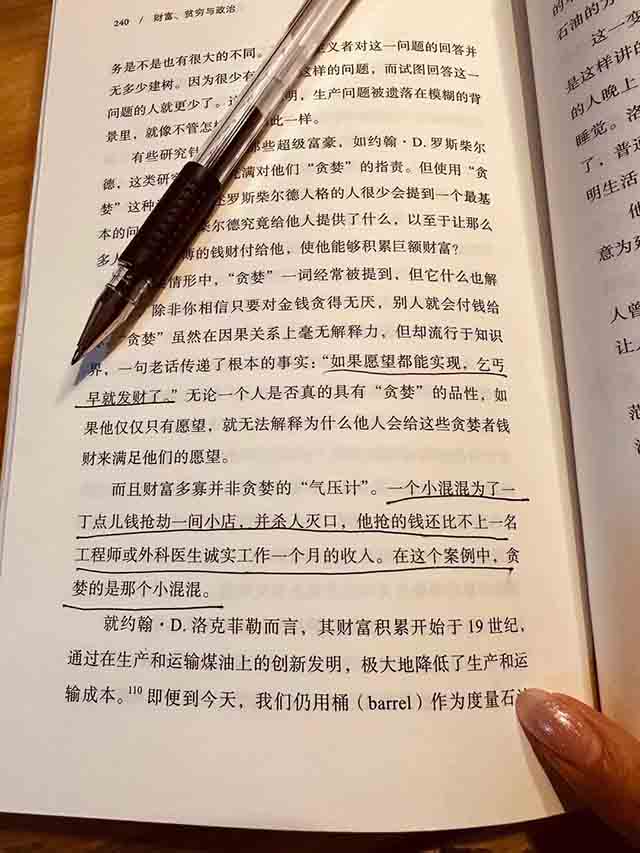 240 / 财富、贫穷与政治
务是不是也有很大的不同。 义者对这一问题的回答并
无多少建树。因为很少有 这样的问题，而试图回答这一
问题的人就更少了。 明，生产问题被遗落在模糊的背
景里，就像不管怎 此一样。
有些研究 那些超级富豪，如约翰·D. 罗斯柴尔
德，这类研究 充满对他们“贪婪”的指责。但使用“贪
婪”这种 罗斯柴尔德人格的人很少会提到一个最基
本的问 柴尔德究竟给他人提供了什么，以至于让那么
多人 的钱财付给他，使他能够积累巨额财富？
情形中，“贪婪”一词经常被提到，但它什么也解
除非你相信只要对金钱贪得无厌，别人就会付钱给
“贪婪”虽然在因果关系上毫无解释力，但却流行于知识
界，一句老话传递了根本的事实：“如果愿望都能实现，乞丐
早就发财了。”无论一个人是否真的具有“贪婪”的品性，如
果他仅仅只有愿望，就无法解释为什么他人会给这些贪婪者钱
财来满足他们的愿望。
而且财富多寡并非贪婪的“气压计”。一个小混混为了一
丁点儿钱抢劫一间小店，并杀人灭口，他抢的钱还比不上一名
工程师或外科医生诚实工作一个月的收入。在这个案例中，贪
婪的是那个小混混。
就约翰·D. 洛克菲勒而言，其财富积累开始于 19 世纪，
通过在生产和运输煤油上的创新发明，极大地降低了生产和运
输成本。110 即便到今天，我们仍用桶（barrel）作为度量石
石油的方
这一变
是这样讲的
的人晚上
睡觉。洛
了，普通
明生活
他
意为
人曾
让